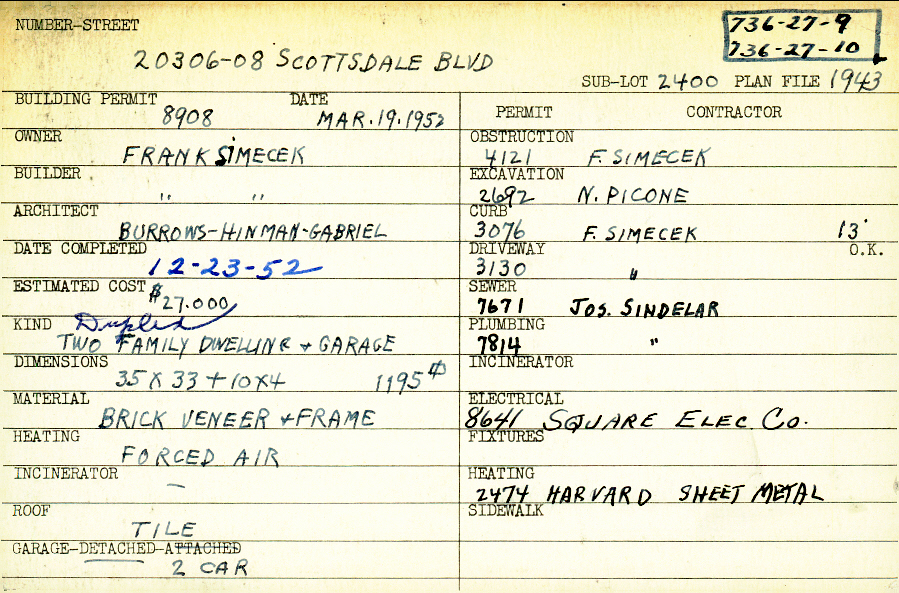 NUMBER-STREET
736-27-9
736-27-10
20306-08 SCOTTSDALE BLVD
SUB-LOT 2400 PLAN FILE 1943
BUILDING PERMIT DATE
8908 MAR. 19. 1952
OWNER
FRANK SIMECEK
BUILDER
" "
ARCHITECT
BURROWS-HINMAN-GABRIEL
DATE COMPLETED
12-23-52
ESTIMATED COST $27.000
KIND Duplex
TWO FAMILY DWELLING + GARAGE
DIMENSIONS
35 X 33 + 10X4 1195
MATERIAL
BRICK VENEER + FRAME
HEATING
FORCED AIR
INCINERATOR
—
ROOF
TILE
GARAGE-DETACHED-ATTACHED
2 CAR
PERMIT CONTRACTOR
OBSTRUCTION
4121 F. SIMECEK
EXCAVATION
2692 N. PICONE
CURB
3076 F. SIMECEK 13'
DRIVEWAY O.K.
3130 "
SEWER
7671 JOS. SINDELAR
PLUMBING
7814 "
INCINERATOR
ELECTRICAL
8641 SQUARE ELEC CO.
FIXTURES
HEATING
2474 HARVARD SHEET METAL
SIDEWALK